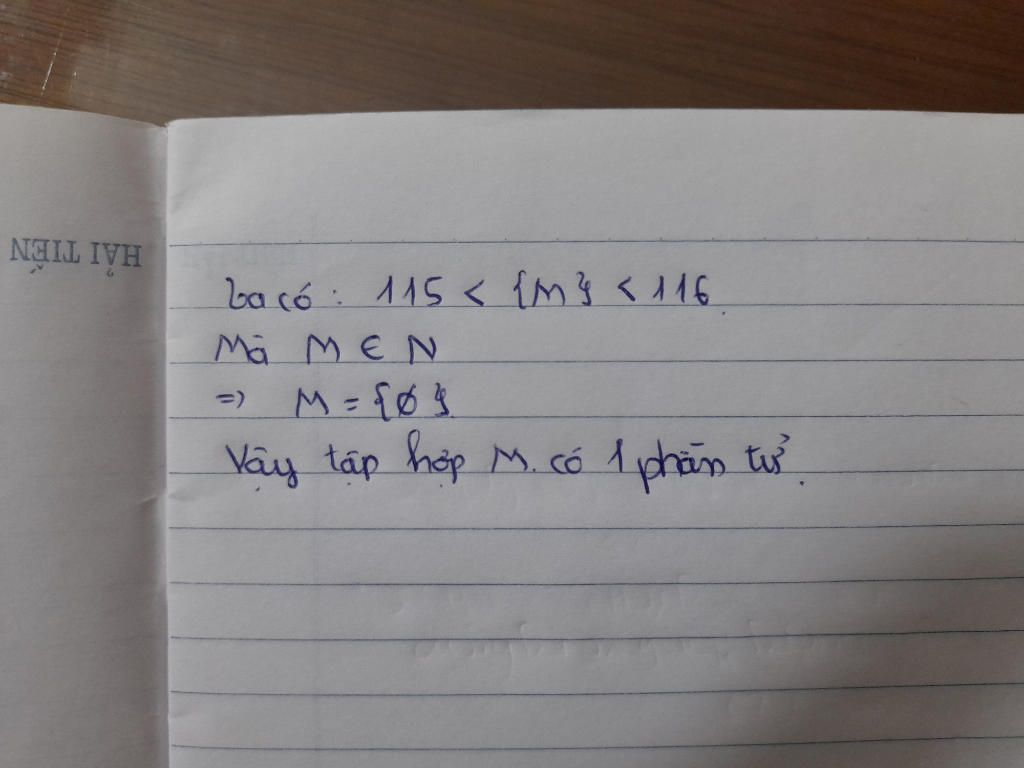 HẢI TIẾN
Ta có : 115 < {M} < 116
Mà M ∈ N
=> M = {∅}
Vậy tập hợp M. có 1 phần tử.